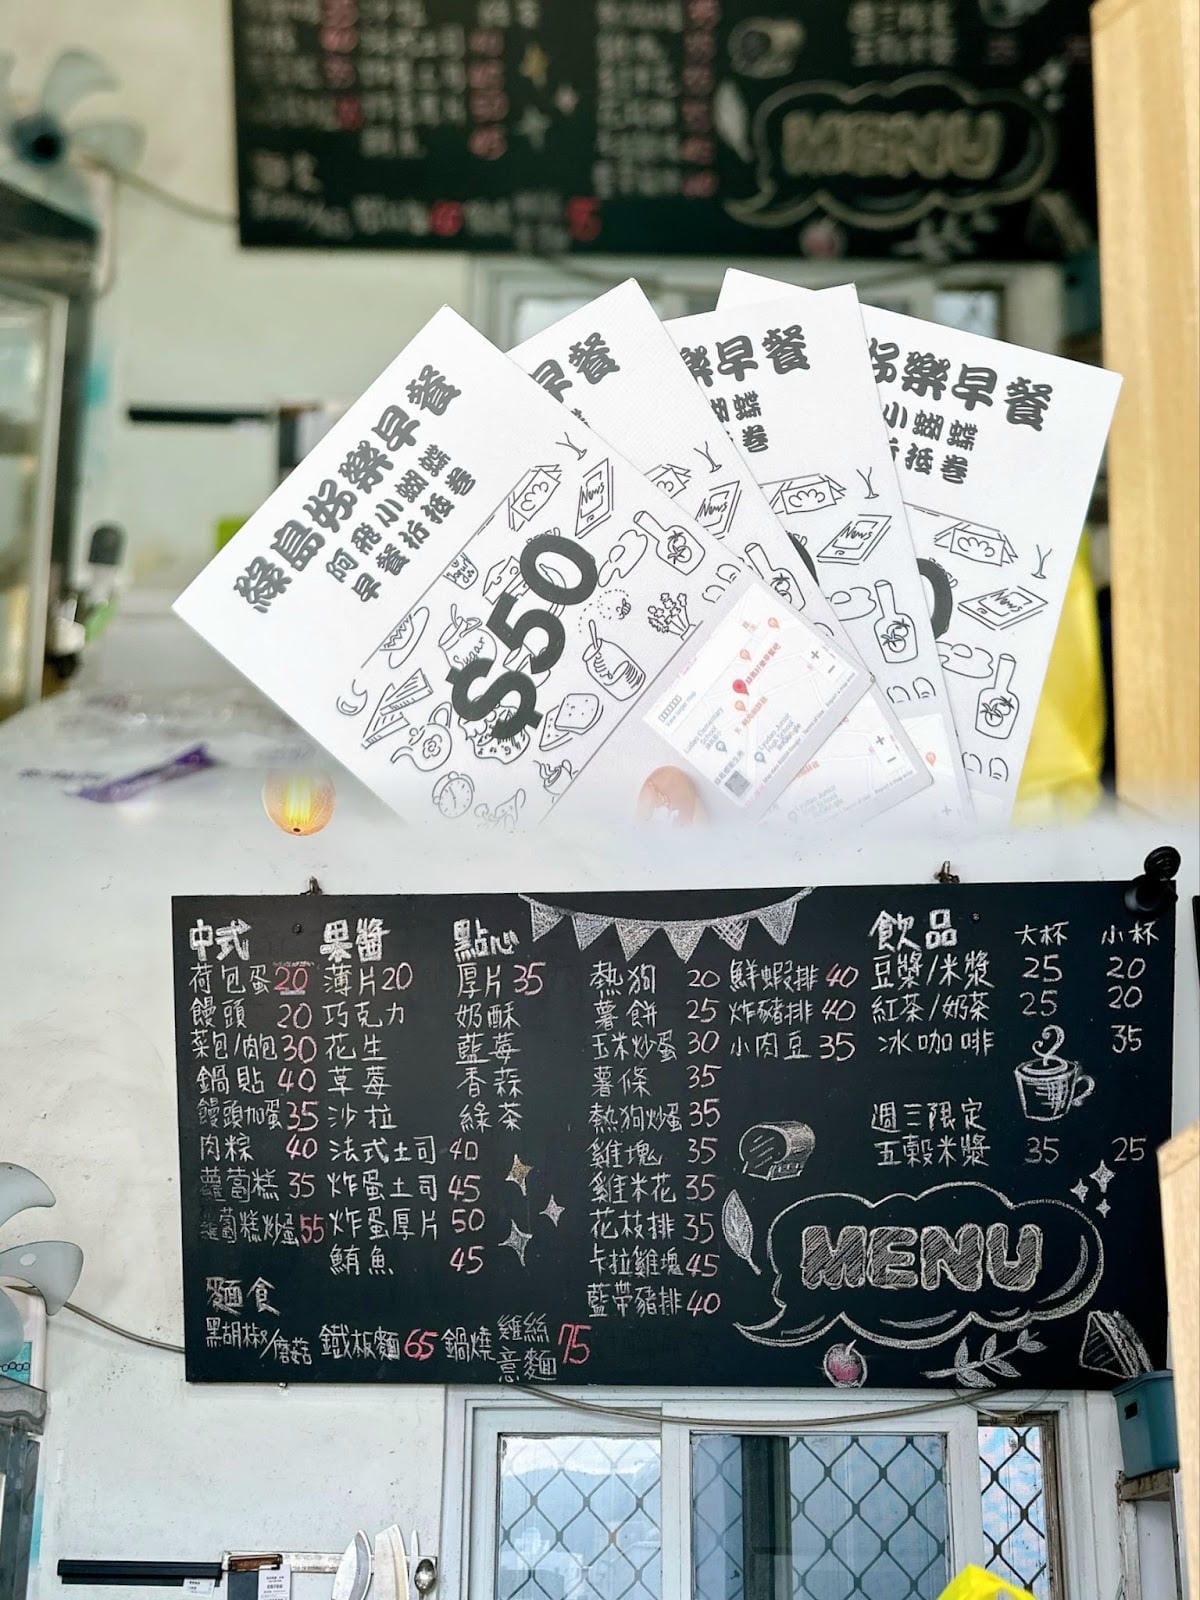 MENU
綠島好樂早餐
阿飛小蝴蝶
早餐折抵卷
$50
Sugar
早餐
樂早餐
蝴蝶
卷
News
好樂早餐
小蝴蝶
折抵卷
News
News
中式
荷包蛋 20
饅頭 20
菜包/肉包 30
鍋貼 40
饅頭加蛋 35
肉粽 40
蘿蔔糕 35
蘿蔔糕炒蛋 55
果醬
薄片 20
巧克力
花生
草莓
沙拉
法式土司 40
炸蛋土司 45
炸蛋厚片 50
鮪魚 45
點心
厚片 35
奶酥
藍莓
香蒜
綠茶
熱狗 20
薯餅 25
玉米炒蛋 30
薯條 35
熱狗炒蛋 35
雞塊 35
雞米花 35
花枝排 35
卡拉雞塊 45
藍帶豬排 40
鮮蝦排 40
炸豬排 40
小肉豆 35
飲品 大杯 小杯
豆漿/米漿 25 20
紅茶/奶茶 25 20
冰咖啡 35
週三限定
五穀米漿 35 25
MENU
麵食
黑胡椒/蘑菇 鐵板麵 65 鍋燒 雞絲 意麵 75